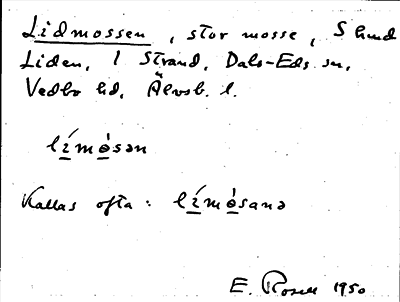 Lidmossen, stor mosse, S hund
Liden, 1 Strand, Dals-Eds sn,
Vedbo hd, Älvsb. l.
lí̠mò̠sən
Kallas ofta: lí̠mò̠sanə
E. Rosell 1950